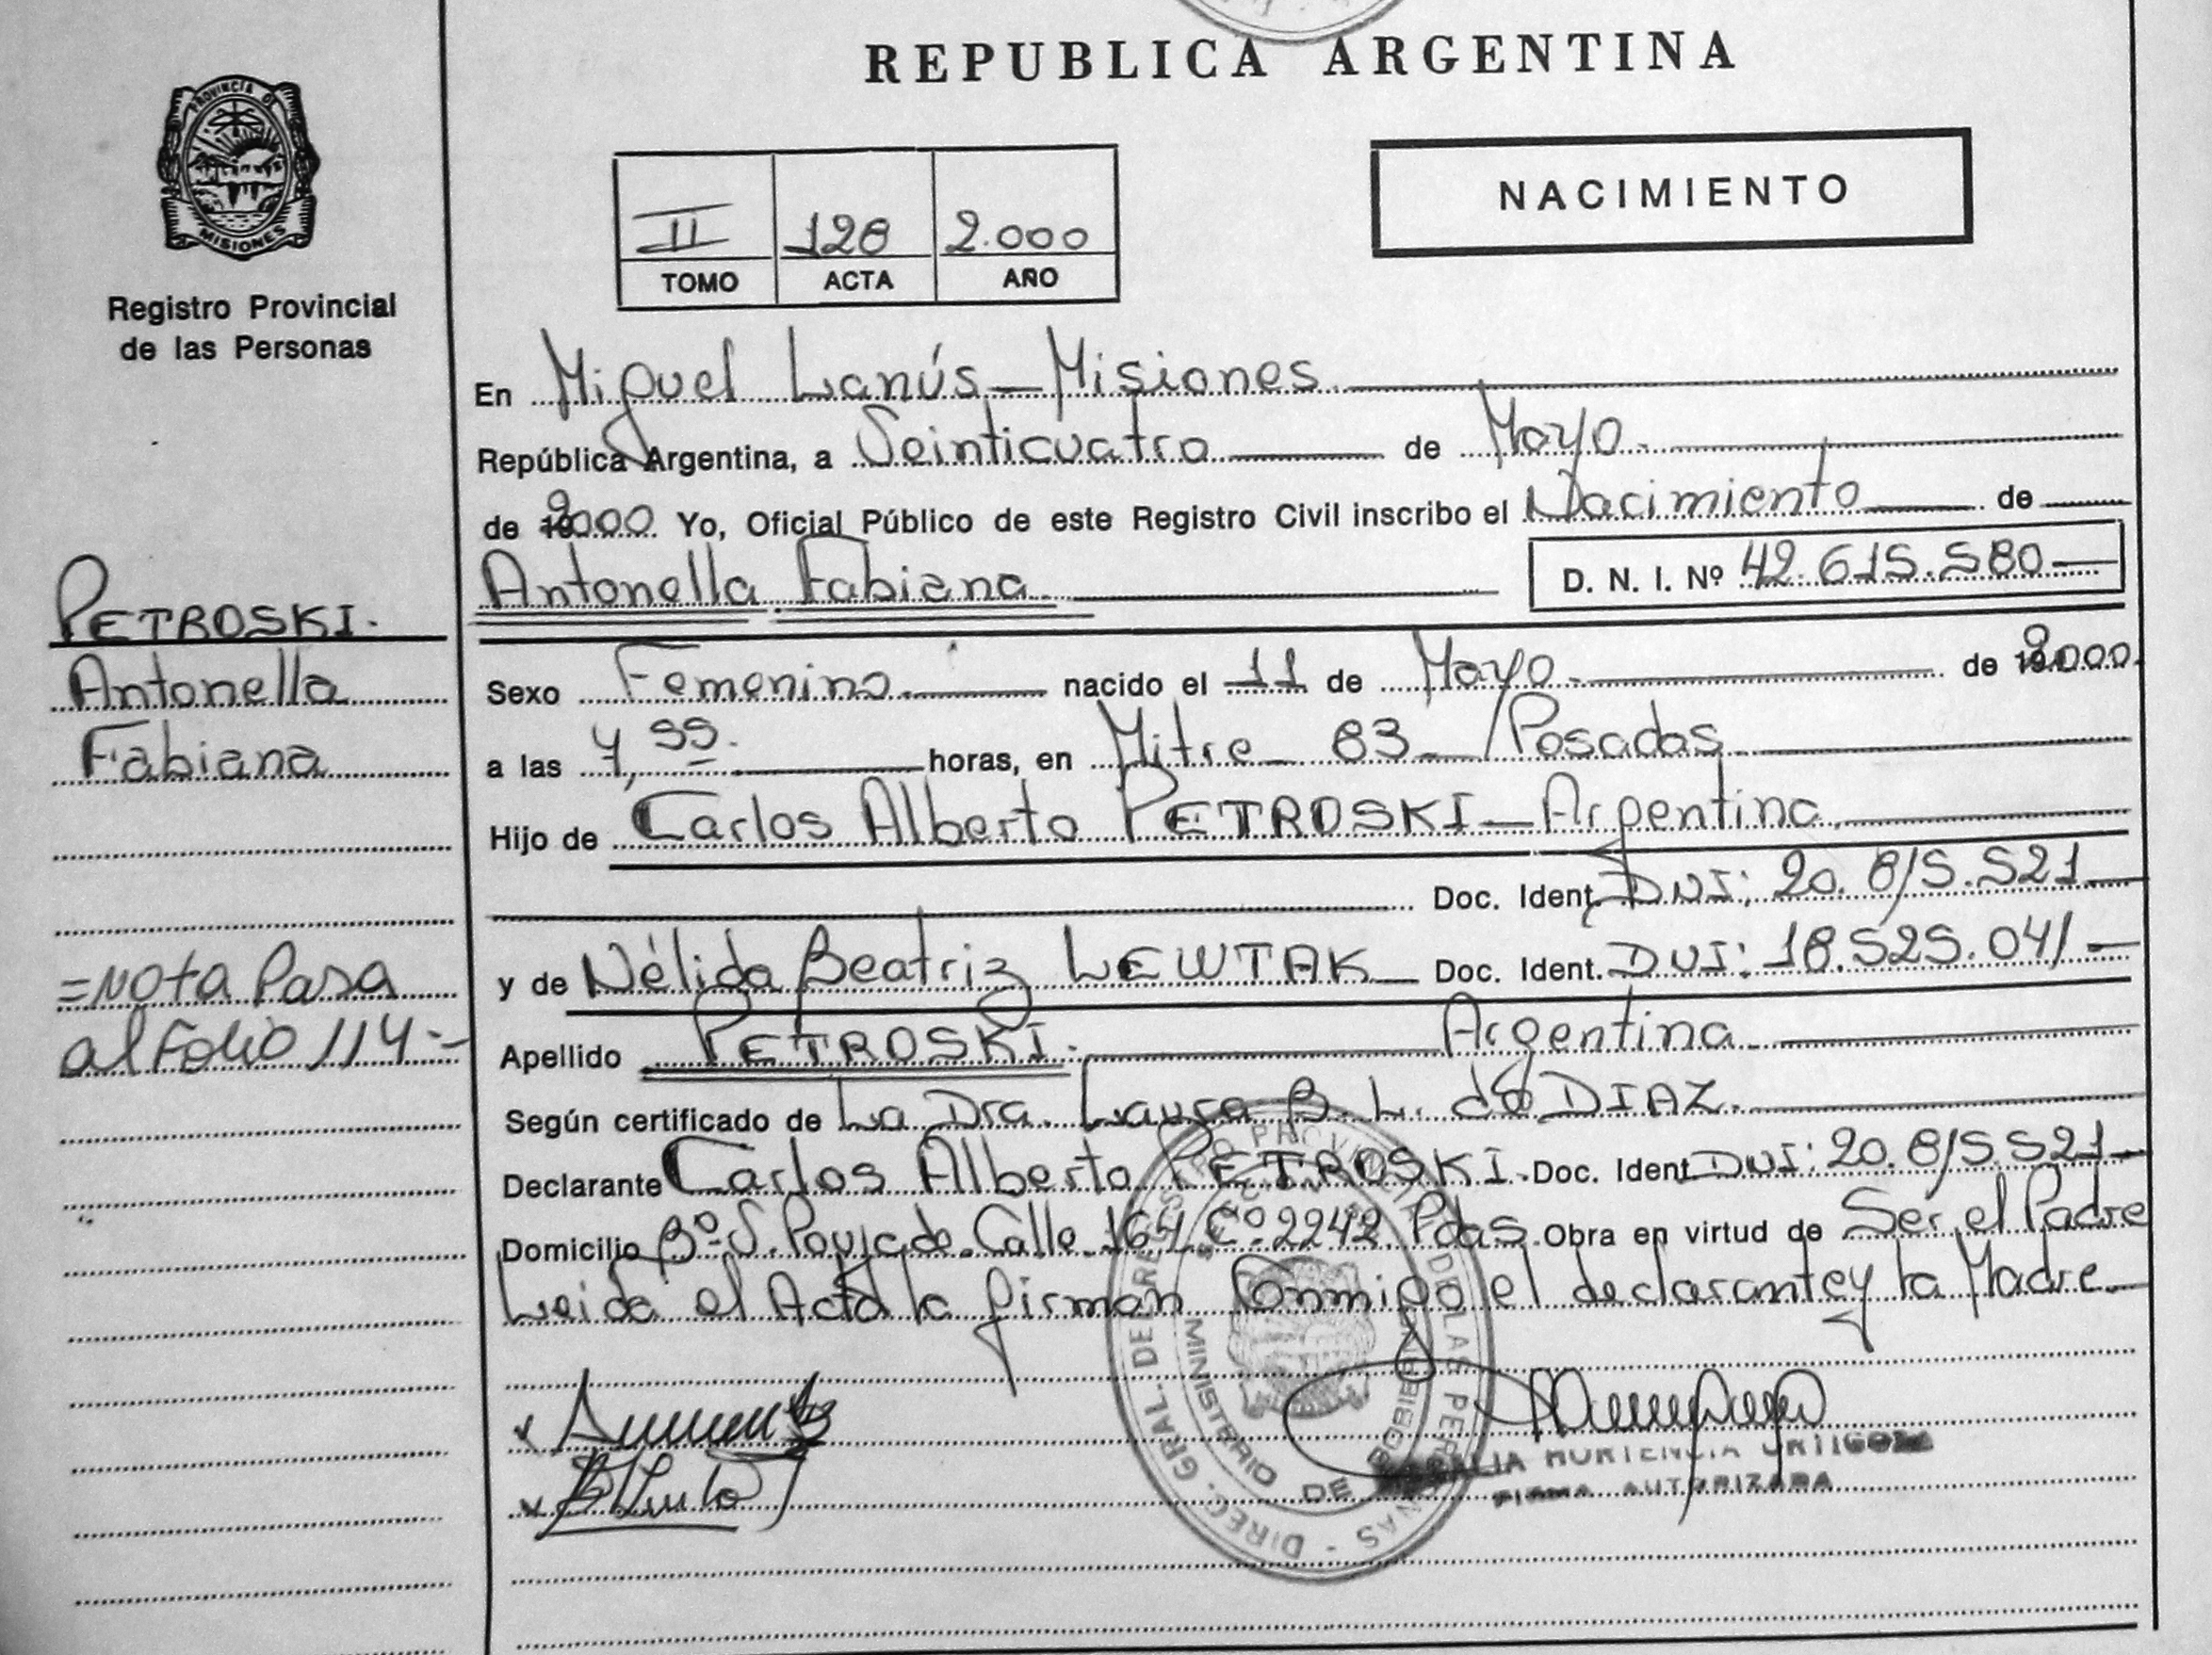 REPUBLICA ARGENTINA
PROVINCIA DE
MISIONES
Registro Provincial
de las Personas
II 128 2.000
TOMO ACTA AÑO
NACIMIENTO
En Miguel Lanús - Misiones
República Argentina, a Veinticuatro de Mayo.
de 2000 Yo, Oficial Público de este Registro Civil inscribo el Nacimiento de
Antonella Fabiana
D. N. I. Nº 42.615.580
PETROSKI.
Antonella
Fabiana
=Nota Pasa
al Folio 114.-
Sexo Femenino nacido el 11 de Mayo de 2000
a las 7,55. horas, en Mitre 83 - Posadas
Hijo de Carlos Alberto PETROSKI - Argentina
Doc. Ident. DNI: 20.815.521
y de Nélida Beatriz LEWTAK Doc. Ident. DNI: 18.525.041
Apellido PETROSKI. Argentina
Según certificado de La Dra. Laura B. L. de DIAZ.
Declarante Carlos Alberto PETROSKI. Doc. Ident. DNI: 20.815.521
Domicilio Bº S. Calle 164 Cº 2242 Pdas. Obra en virtud de Ser el Padre
Leida el Acta la firman Conmigo el declarante y la Madre.
HORTENCIA
FIRMA AUTORIZADA
DIREC. GRAL. DE REGISTRO PROVINCIAL DE LAS PERSONAS
MINISTERIO DE GOBIERNO